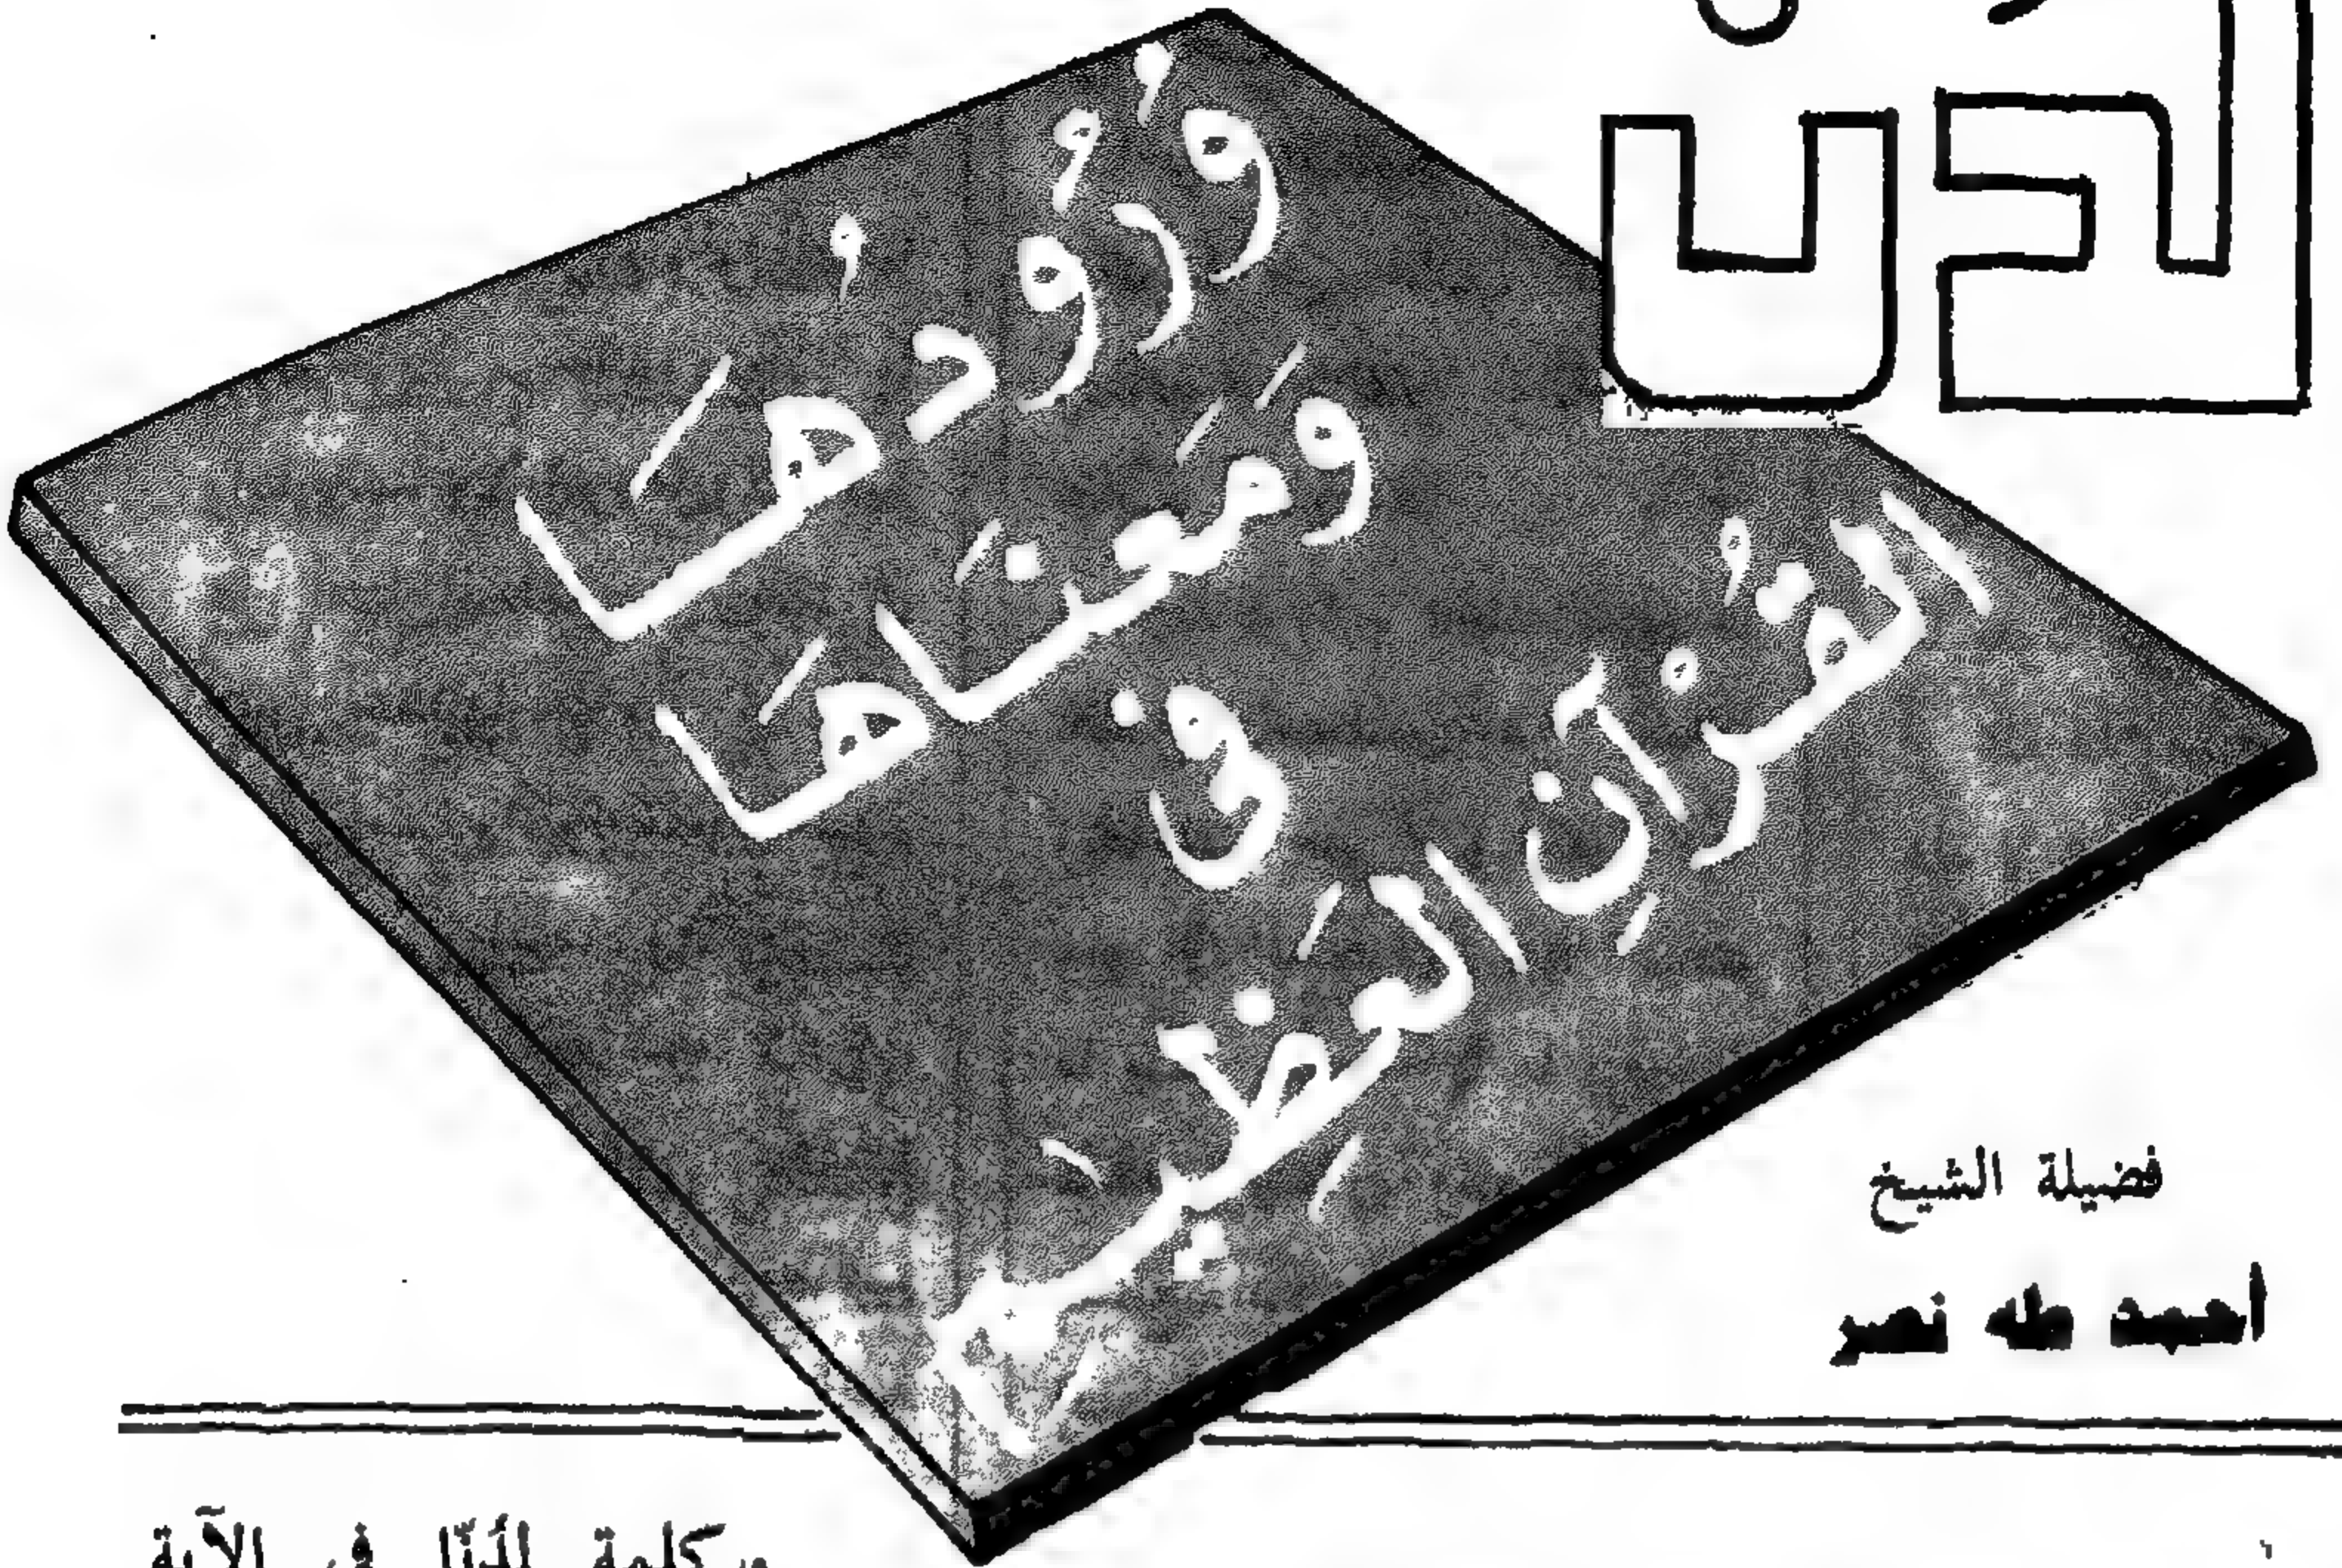 لدن
وُرُودُهَا
وَمَعنَاهَا
فى
القُرْآنِ العَظِيمِ
فضيلة الشيخ
أحمد طه نصر
وكلمة لَدُنَّا في الآية